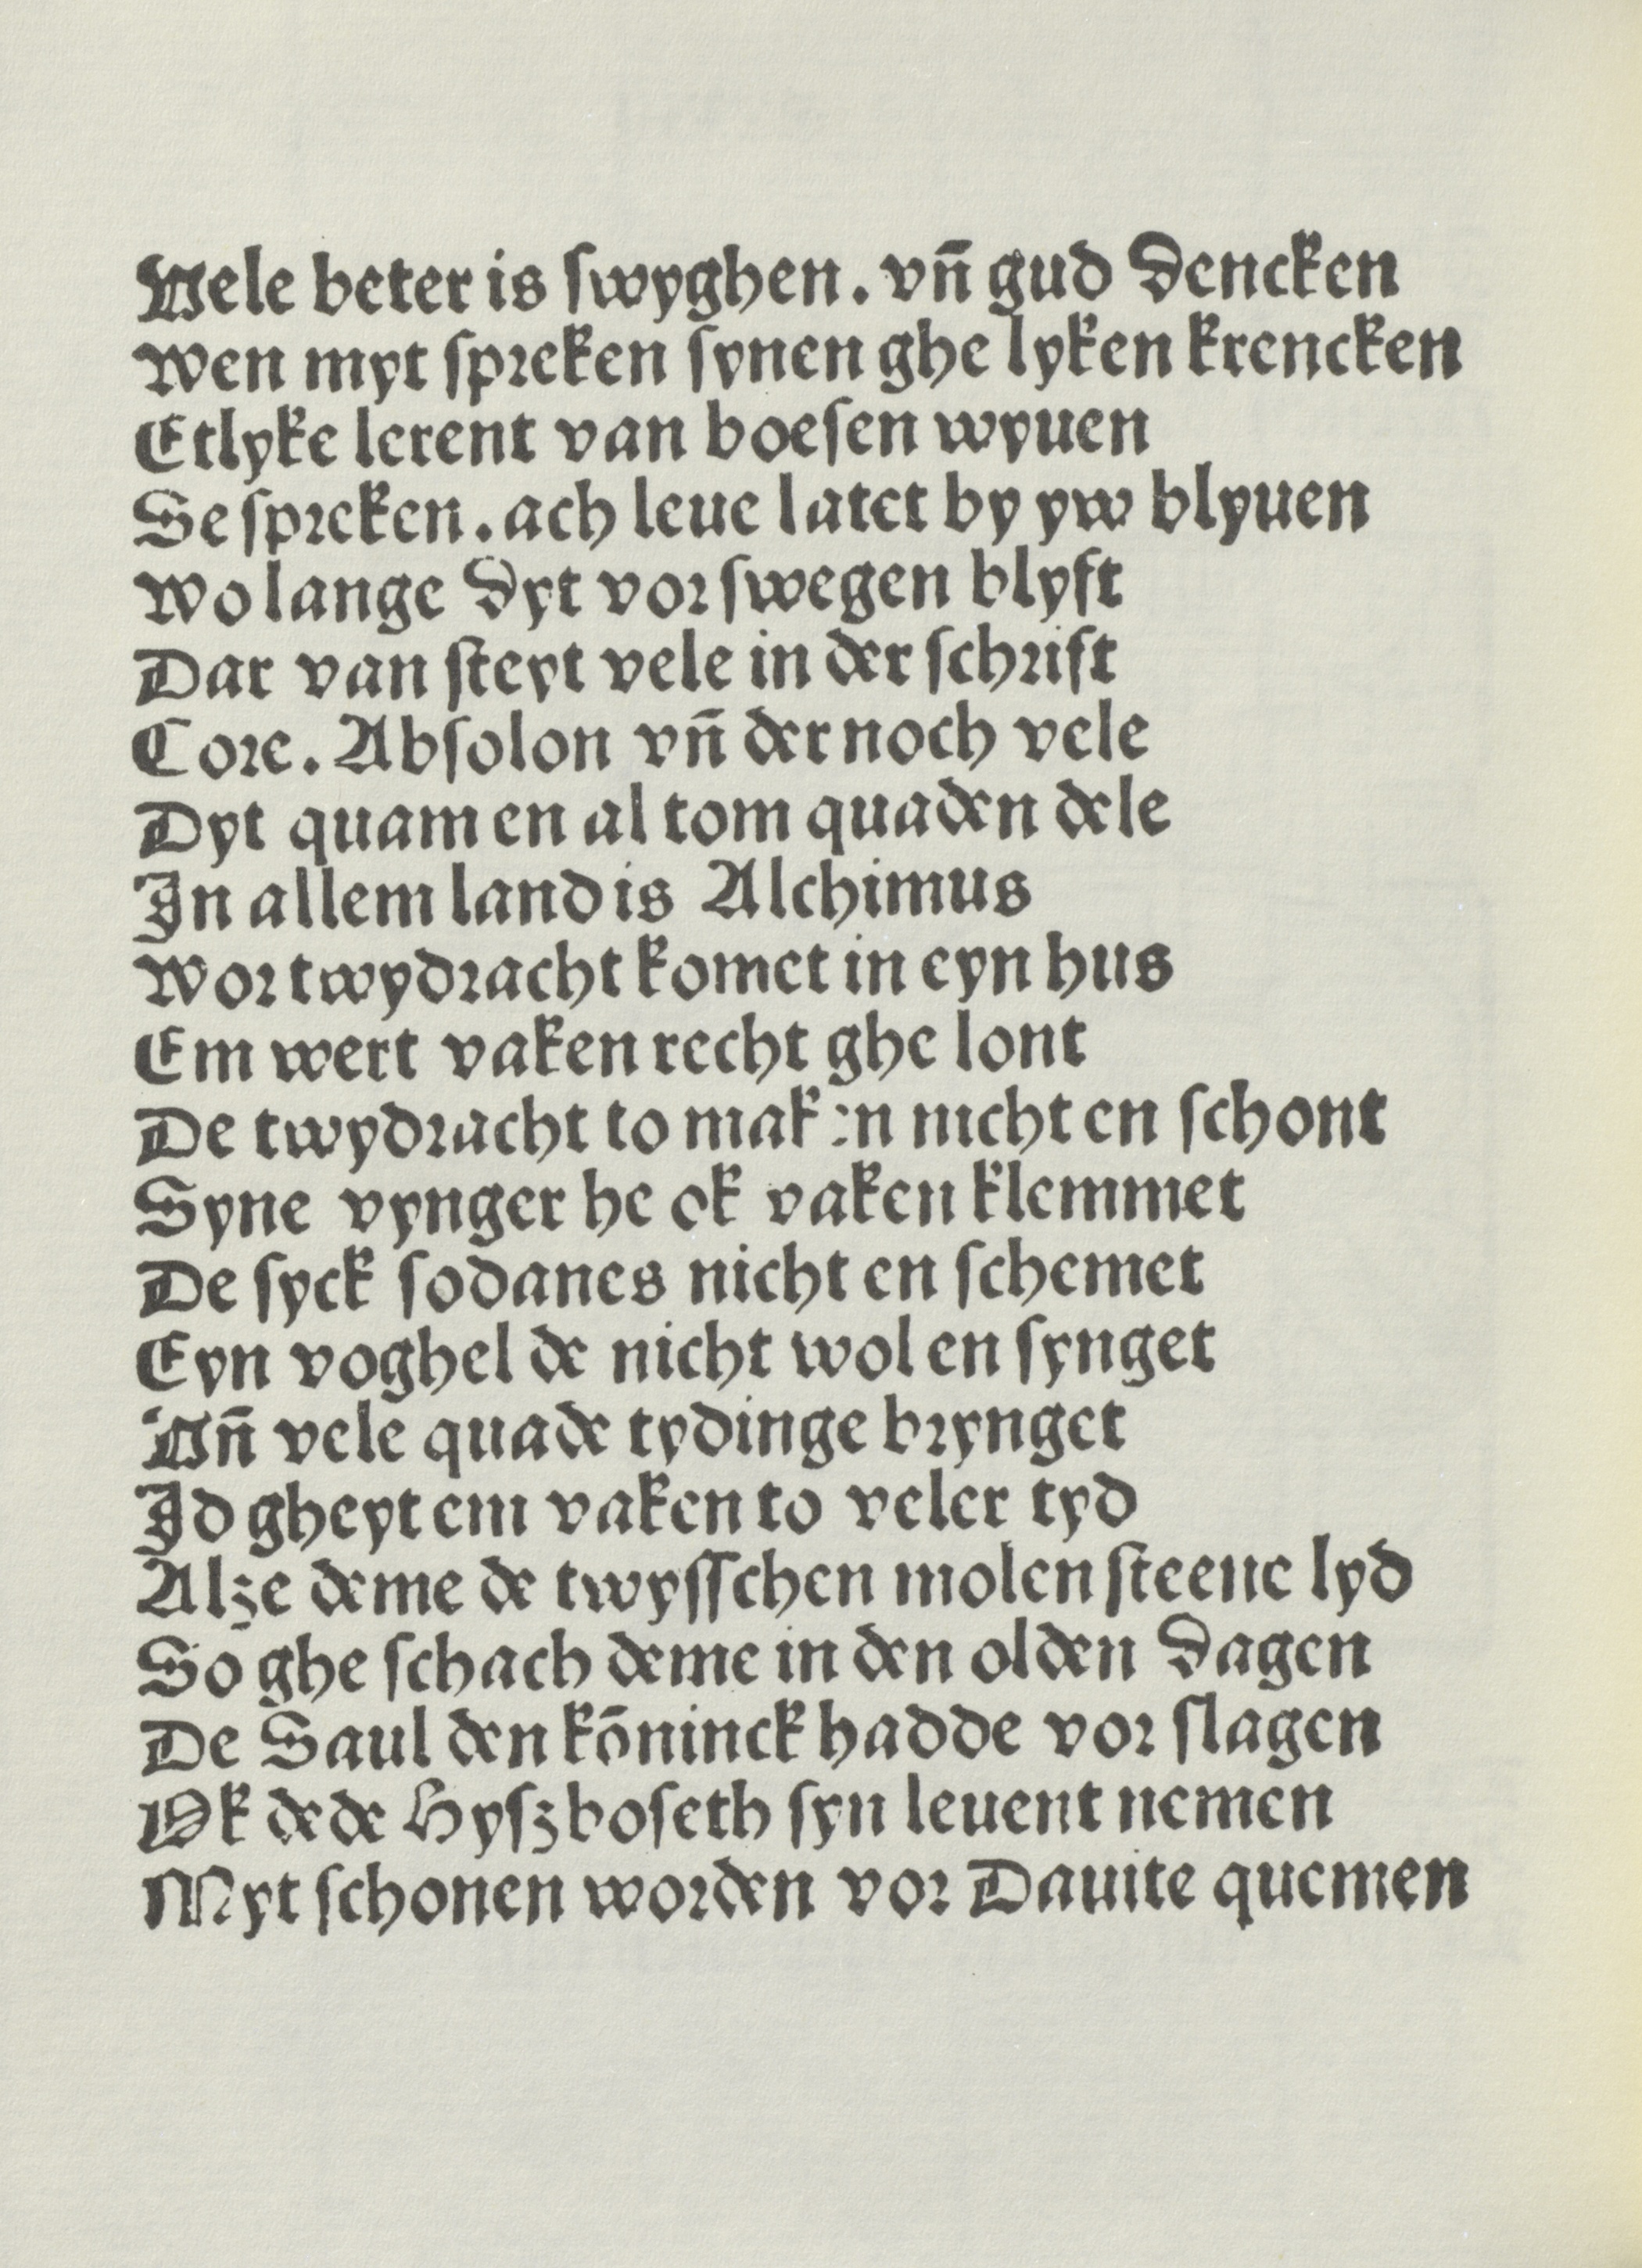 Vele beter is ſwyghen. vn̄ gud dencken
wen myt ſpreken ſynen ghe lyken krencken
Etlyke lerent van boeſen wyuen
Se ſpreken. ach leue latet by yw blyuen
wo lange dyt vor ſwegen blyft
Dar van ſteyt vele in der ſchrift
Core. Abſolon vn̄ der noch vele
Dyt quam en al tom quaden dele
In allem land is Alchimus
wor twydracht komet in eyn hus
Em wert vaken recht ghe lont
De twydracht to maken nicht en ſchont
Syne vynger he ok vaken klemmet
De ſyck ſodanes nicht en ſchemet
Eyn voghel de nicht wol en ſynget
Vn̄ vele quade tydinge brynget
Id gheyt em vaken to veler tyd
Alze deme de twyſſchen molen ſteene lyd
So ghe ſchach deme in den olden dagen
De Saul den kōninck hadde vor ſlagen
Ok dede Hyſzboſeth ſyn leuent nemen
Myt ſchonen worden vor Dauite quemen